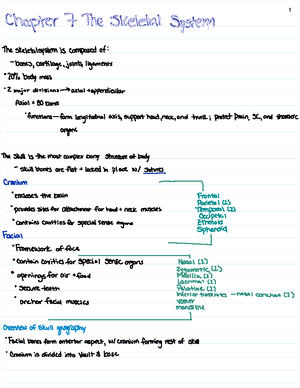 1
Chapter 7 The Skeletal System
The skeletal system is composed of:
- bones, cartilage, joints, ligaments
* 20% body mass
* 2 major divisions → axial + appendicular
Axial = 80 bones
* functions - form longitudinal axis, support head, neck, and trunk; protect brain, SC, and thoracic
organs
The skull is the most complex bony structure of body
- skull bones are flat + locked in place w/ sutures
Cranium
* encloses the brain
* provides sites for attachment for head + neck muscles
* contains cavities for special sense organs
Frontal
Parietal (2)
Temporal (2)
Occipital
Ethmoid
Sphenoid
Facial
* Framework of face
* contain cavities for special sense organs
* openings for air + food
* secure teeth
* anchor facial muscles
Nasal (2)
Zygomatic (2)
Maxilla (2)
Lacrimal (2)
Palatine (2)
inferior turbinates - nasal conchae (2)
vomer
mandible
Overview of skull geography
* Facial bones form anterior aspect, w/ cranium forming rest of skull
* Cranium is divided into vault & base